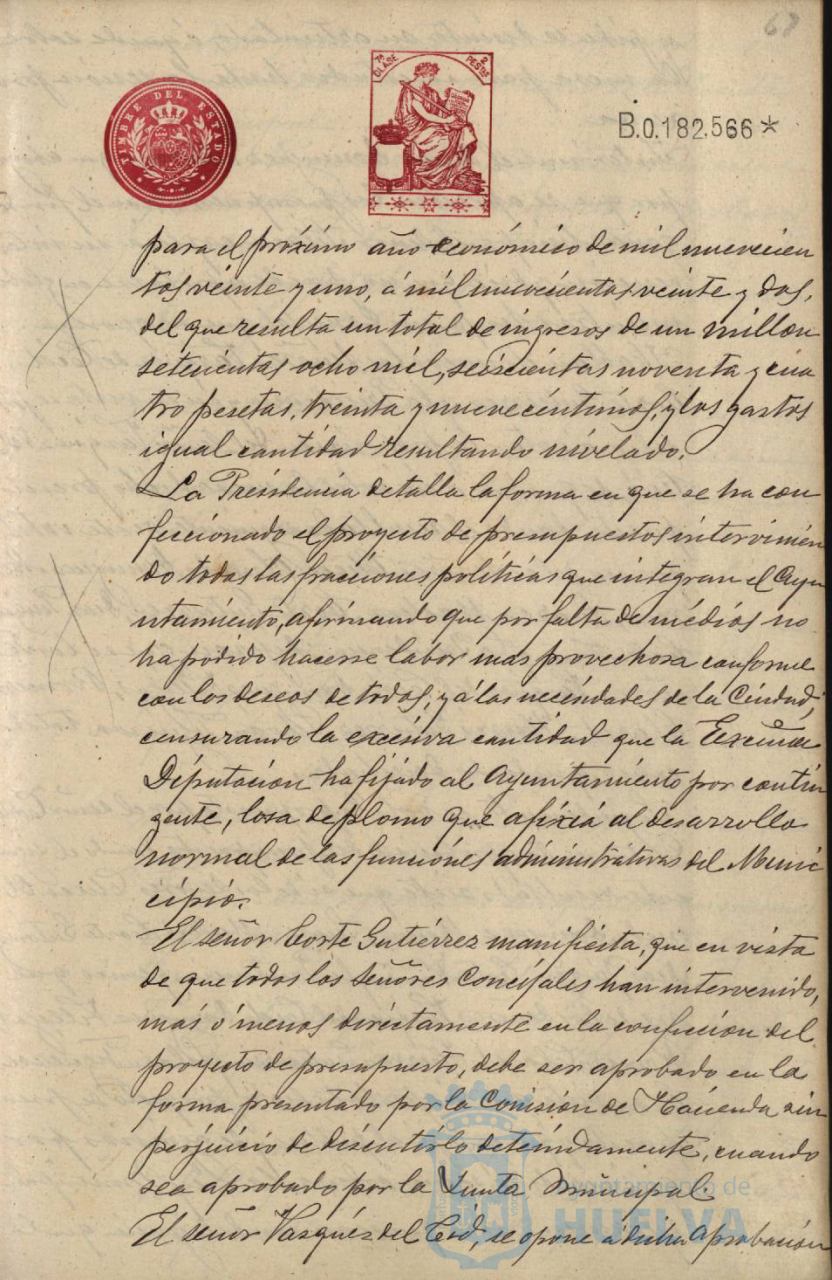 67
TIMBRE DEL ESTADO
7ª CLASE 2 PESTAS
B.0.182.566*
para el próximo año económico de mil novecien
tos veinte y uno, á mil nuevecientos veinte y dos,
del que resulta un total de ingresos de un millon
setecientas ocho mil, seiscientas noventa y cua
tro pesetas, treinta y nueve céntimos, y los gastos
igual cantidad resultando nivelado.
La Presidencia detalla la forma en que se ha con
feccionado el proyecto de presupuestos intervinien
do todas las fracciones políticas que integran el Ayu
ntamiento, afirmando que por falta de médios no
ha podido hacerse labor mas provechosa conforme
con los deseos de todos, y á las necesidades de la Ciudad,
censurando la excesiva cantidad que la Excma
Diputacion ha fijado al Ayuntamiento por contin
gente, losa de plomo que afixiá al desarrollo
normal de las funciones administrativas del Muni
cipio.
El señor Corte Gutiérrez manifiesta, que en vista
de que todos los señores Concejales han intervenido,
más ó menos diréctamente en la confeccion del
proyecto de presupuesto, debe ser aprobado en la
forma presentado por la Comision de Hacienda sin
perjuicio de discutirlo detenidamente, cuando
sea aprobado por la Junta Municipal.
El señor Vasqués del Cid, se opone á dicha aprobacion
Ayuntamiento de
HUELVA